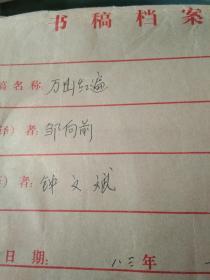 书稿档案
稿名称 万山红遍
译）者：邹向前
）者：钟文斌
日期： 八三年